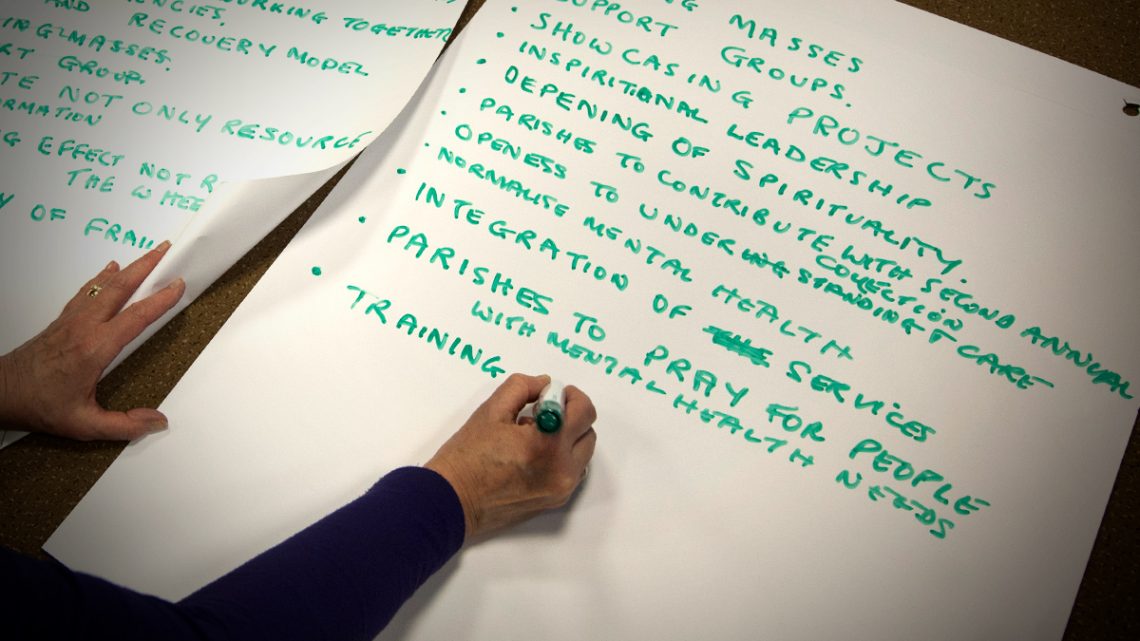 WORKING TOGETHER
AND RECOVERY MODEL
MASSES.
GROUP.
NOT ONLY RESOURCE
EFFECT NOT
THE
OF
MASSES
SUPPORT GROUPS.
• SHOWCASING PROJECTS
• INSPIRITIONAL LEADERSHIP
• DEPENING OF SPIRITUALITY.
• PARISHES TO CONTRIBUTE WITH SECOND ANNUAL
COLLECTION
• OPENESS TO UNDERSTANDING & CARE
• NORMALISE MENTAL HEALTH
• INTEGRATION OF SERVICES
• PARISHES TO PRAY FOR PEOPLE
WITH MENTAL HEALTH NEEDS
• TRAINING